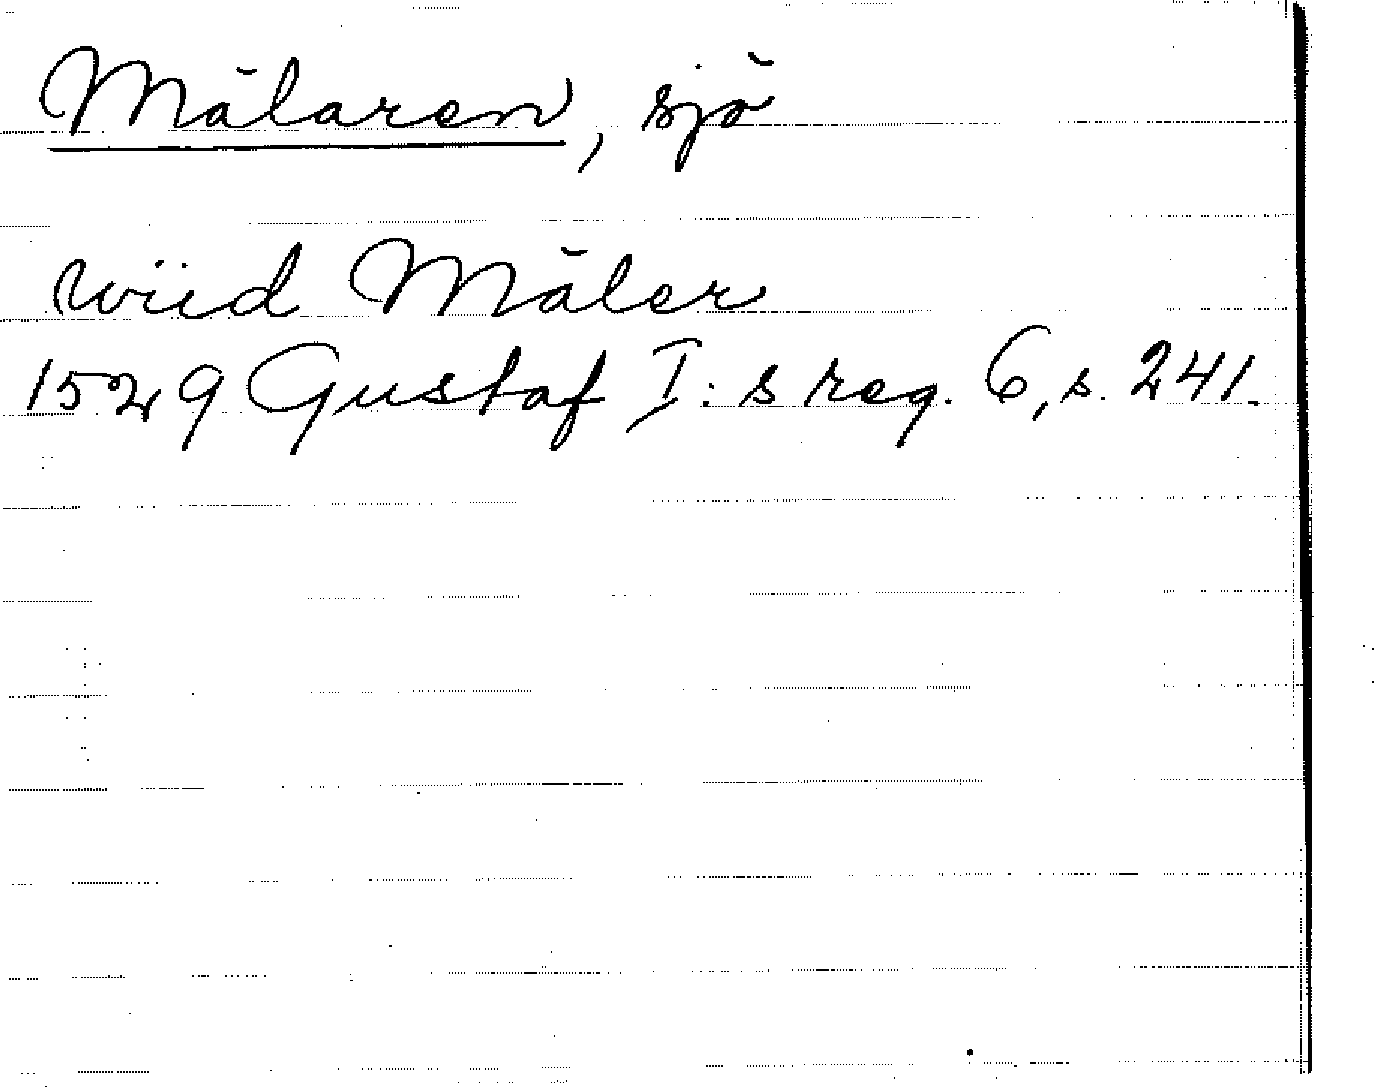 Mälaren, sjö
wiid Mäler
1529 Gustaf I:s reg. 6, s. 241.